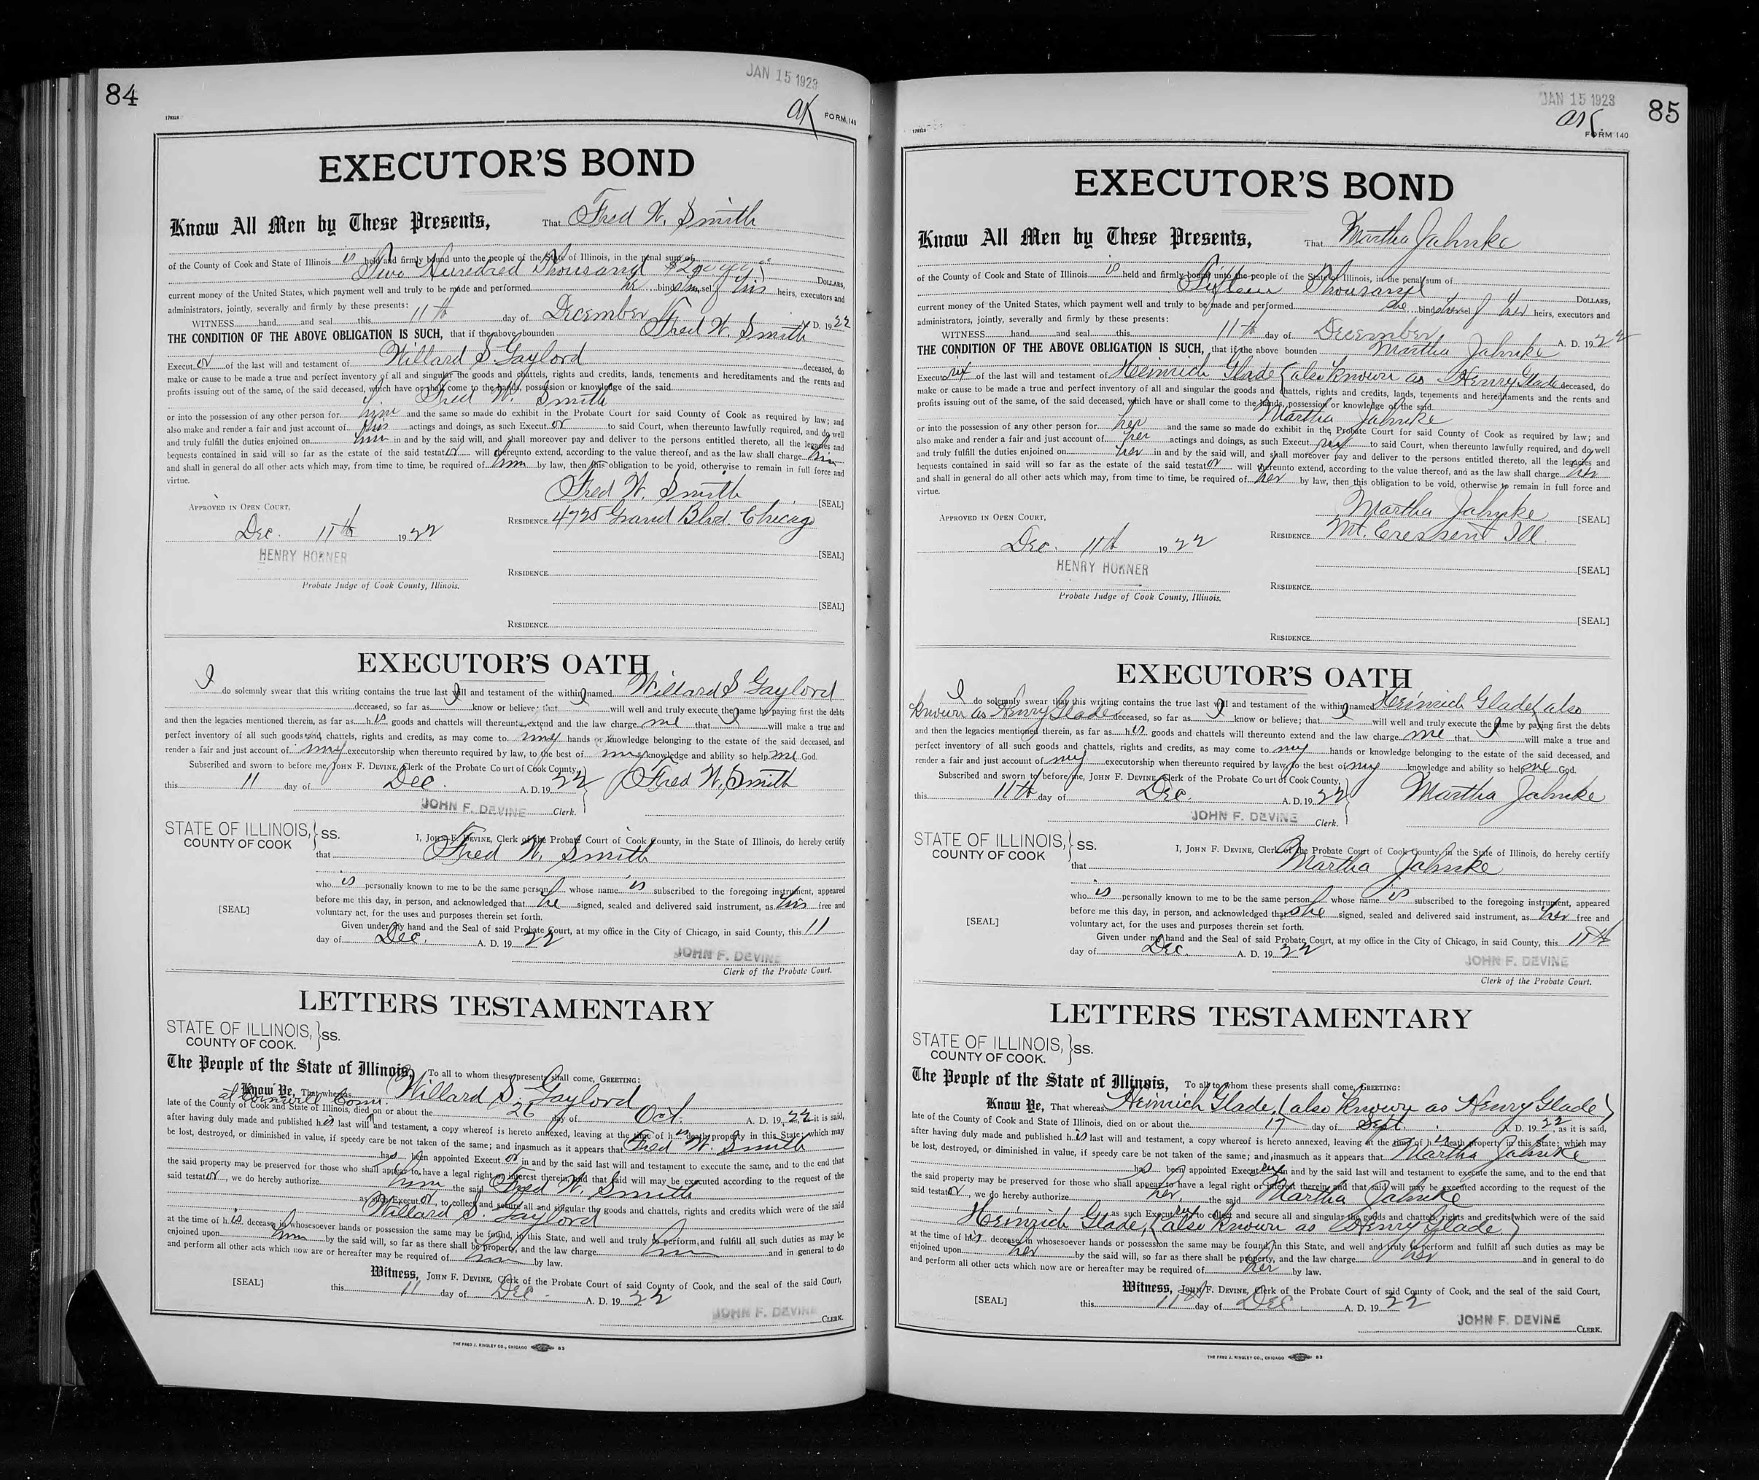 84
JAN 15 1923
OK
FORM 140
EXECUTOR'S BOND
Know All Men by These Presents, That Fred W. Smith
of the County of Cook and State of Illinois is held and firmly bound unto the people of the State of Illinois, in the penal sum of
Two Hundred Thousand DOLLARS,
current money of the United States, which payment well and truly to be made and performed he bind himself his heirs, executors and
administrators, jointly, severally and firmly by these presents:
WITNESS hand and seal this 11th day of December A. D. 1922
THE CONDITION OF THE ABOVE OBLIGATION IS SUCH, that if the above bounden Fred W. Smith
Execut or of the last will and testament of Willard S. Gaylord deceased, do
make or cause to be made a true and perfect inventory of all and singular the goods and chattels, rights and credits, lands, tenements and hereditaments and the rents and
profits issuing out of the same, of the said deceased, which have or shall come to the hands, possession or knowledge of the said
Fred W. Smith
or into the possession of any other person for him and the same so made do exhibit in the Probate Court for said County of Cook as required by law; and
also make and render a fair and just account of his actings and doings, as such Execut or to said Court, when thereunto lawfully required, and do well
and truly fulfill the duties enjoined on him in and by the said will, and shall moreover pay and deliver to the persons entitled thereto, all the legacies and
bequests contained in said will so far as the estate of the said testat or will thereunto extend, according to the value thereof, and as the law shall charge him
and shall in general do all other acts which may, from time to time, be required of him by law, then this obligation to be void, otherwise to remain in full force and
virtue.
Fred W. Smith [SEAL]
APPROVED IN OPEN COURT,
RESIDENCE 4725 Grand Blvd. Chicago
Dec. 11th 1922
HENRY HORNER
[SEAL]
Probate Judge of Cook County, Illinois.
RESIDENCE
[SEAL]
RESIDENCE
EXECUTOR'S OATH
I do solemnly swear that this writing contains the true last will and testament of the within named Willard S Gaylord
deceased, so far as I know or believe; that I will well and truly execute the same by paying first the debts
and then the legacies mentioned therein, as far as his goods and chattels will thereunto extend and the law charge me that I will make a true and
perfect inventory of all such goods and chattels, rights and credits, as may come to my hands or knowledge belonging to the estate of the said deceased, and
render a fair and just account of my executorship when thereunto required by law, to the best of my knowledge and ability so help me God.
Subscribed and sworn to before me, JOHN F. DEVINE, Clerk of the Probate Court of Cook County,
this 11 day of Dec. A. D. 1922 Fred W. Smith
JOHN F. DEVINE Clerk.
STATE OF ILLINOIS, COUNTY OF COOK } SS.
I, JOHN F. DEVINE, Clerk of the Probate Court of Cook County, in the State of Illinois, do hereby certify
that Fred W. Smith
who is personally known to me to be the same person whose name is subscribed to the foregoing instrument, appeared
before me this day, in person, and acknowledged that he signed, sealed and delivered said instrument, as his free and
voluntary act, for the uses and purposes therein set forth.
[SEAL]
Given under my hand and the Seal of said Probate Court, at my office in the City of Chicago, in said County, this 11
day of Dec. A. D. 1922
JOHN F. DEVINE
Clerk of the Probate Court.
LETTERS TESTAMENTARY
STATE OF ILLINOIS, COUNTY OF COOK. } SS.
The People of the State of Illinois, To all to whom these presents shall come, GREETING:
Know Ye, That whereas Willard S. Gaylord
at Cornwill Conn.
late of the County of Cook and State of Illinois, died on or about the 26 day of Oct. A. D. 1922 it is said,
after having duly made and published his last will and testament, a copy whereof is hereto annexed, leaving at the time of his death property in this State; which may
be lost, destroyed, or diminished in value, if speedy care be not taken of the same; and inasmuch as it appears that Fred W. Smith
has been appointed Execut or in and by the said last will and testament to execute the same, and to the end that
the said property may be preserved for those who shall appear to have a legal right or interest therein, and that said will may be executed according to the request of the
said testat or, we do hereby authorize him the said Fred W. Smith
as such Execut or, to collect and secure all and singular the goods and chattels, rights and credits which were of the said
Willard S. Gaylord
at the time of his decease in whosesoever hands or possession the same may be found, in this State, and well and truly to perform and fulfill all such duties as may be
enjoined upon him by the said will, so far as there shall be property, and the law charge him and in general to do
and perform all other acts which now are or hereafter may be required of him by law.
Witness, JOHN F. DEVINE, Clerk of the Probate Court of said County of Cook, and the seal of the said Court,
[SEAL] this 11 day of Dec. A. D. 1922
JOHN F. DEVINE CLERK.
THE FRED J. RINGLEY CO., CHICAGO 83
JAN 15 1923
85
OK
FORM 140
EXECUTOR'S BOND
Know All Men by These Presents, That Martha Jahnke
of the County of Cook and State of Illinois is held and firmly bound unto the people of the State of Illinois, in the penal sum of
Thousand DOLLARS,
current money of the United States, which payment well and truly to be made and performed she bind herself her heirs, executors and
administrators, jointly, severally and firmly by these presents:
WITNESS hand and seal this 11th day of December A. D. 1922
THE CONDITION OF THE ABOVE OBLIGATION IS SUCH, that if the above bounden Martha Jahnke
Execut rix of the last will and testament of Heinrich Glade (also known as Henry Glade deceased, do
make or cause to be made a true and perfect inventory of all and singular the goods and chattels, rights and credits, lands, tenements and hereditaments and the rents and
profits issuing out of the same, of the said deceased, which have or shall come to the hands, possession or knowledge of the said
Martha Jahnke
or into the possession of any other person for her and the same so made do exhibit in the Probate Court for said County of Cook as required by law; and
also make and render a fair and just account of her actings and doings, as such Execut rix to said Court, when thereunto lawfully required, and do well
and truly fulfill the duties enjoined on her in and by the said will, and shall moreover pay and deliver to the persons entitled thereto, all the legacies and
bequests contained in said will so far as the estate of the said testat or will thereunto extend, according to the value thereof, and as the law shall charge her
and shall in general do all other acts which may, from time to time, be required of her by law, then this obligation to be void, otherwise to remain in full force and
virtue.
Martha Jahnke [SEAL]
APPROVED IN OPEN COURT,
RESIDENCE Mt. Cressent Ill.
Dec. 11th 1922
HENRY HORNER
[SEAL]
Probate Judge of Cook County, Illinois.
RESIDENCE
[SEAL]
RESIDENCE
EXECUTOR'S OATH
I do solemnly swear that this writing contains the true last will and testament of the within named Heinrich Glade (also
known as Henry Glade deceased, so far as I know or believe; that I will well and truly execute the same by paying first the debts
and then the legacies mentioned therein, as far as his goods and chattels will thereunto extend and the law charge me that I will make a true and
perfect inventory of all such goods and chattels, rights and credits, as may come to my hands or knowledge belonging to the estate of the said deceased, and
render a fair and just account of my executorship when thereunto required by law, to the best of my knowledge and ability so help me God.
Subscribed and sworn to before me, JOHN F. DEVINE, Clerk of the Probate Court of Cook County,
this 11th day of Dec. A. D. 1922 Martha Jahnke
JOHN F. DEVINE Clerk.
STATE OF ILLINOIS, COUNTY OF COOK } SS.
I, JOHN F. DEVINE, Clerk of the Probate Court of Cook County, in the State of Illinois, do hereby certify
that Martha Jahnke
who is personally known to me to be the same person whose name is subscribed to the foregoing instrument, appeared
before me this day, in person, and acknowledged that she signed, sealed and delivered said instrument, as her free and
voluntary act, for the uses and purposes therein set forth.
[SEAL]
Given under my hand and the Seal of said Probate Court, at my office in the City of Chicago, in said County, this 11th
day of Dec. A. D. 1922
JOHN F. DEVINE
Clerk of the Probate Court.
LETTERS TESTAMENTARY
STATE OF ILLINOIS, COUNTY OF COOK. } SS.
The People of the State of Illinois, To all to whom these presents shall come, GREETING:
Know Ye, That whereas Heinrich Glade, (also known as Henry Glade)
late of the County of Cook and State of Illinois, died on or about the 17 day of Sept. A. D. 1922, as it is said,
after having duly made and published his last will and testament, a copy whereof is hereto annexed, leaving at the time of his death property in this State; which may
be lost, destroyed, or diminished in value, if speedy care be not taken of the same; and inasmuch as it appears that Martha Jahnke
has been appointed Execut rix in and by the said last will and testament to execute the same, and to the end that
the said property may be preserved for those who shall appear to have a legal right or interest therein, and that said will may be executed according to the request of the
said testat or, we do hereby authorize her the said Martha Jahnke
as such Execut rix to collect and secure all and singular the goods and chattels, rights and credits which were of the said
Heinrich Glade, (also known as Henry Glade)
at the time of his decease in whosesoever hands or possession the same may be found, in this State, and well and truly to perform and fulfill all such duties as may be
enjoined upon her by the said will, so far as there shall be property, and the law charge her and in general to do
and perform all other acts which now are or hereafter may be required of her by law.
Witness, JOHN F. DEVINE, Clerk of the Probate Court of said County of Cook, and the seal of the said Court,
[SEAL] this 11th day of Dec. A. D. 1922
JOHN F. DEVINE CLERK.
THE FRED J. RINGLEY CO., CHICAGO 83